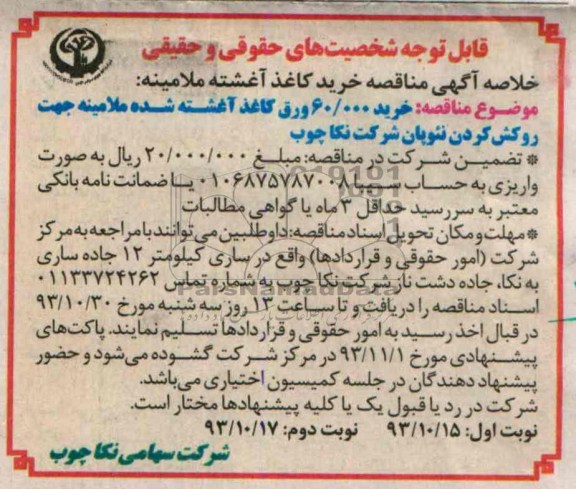 قابل توجه شخصیت‌های حقوقی و حقیقی
خلاصه آگهی مناقصه خرید کاغذ آغشته ملامینه:
موضوع مناقصه: خرید ۶۰/۰۰۰ ورق کاغذ آغشته شده ملامینه جهت
روکش کردن نئوپان شرکت نکا چوب
* تضمین شرکت در مناقصه: مبلغ ۲۰/۰۰۰/۰۰۰ ریال به صورت
واریزی به حساب سیبا ۰۱۰۶۸۷۵۷۸۷۰۰۸ یا ضمانت نامه بانکی
معتبر به سررسید حداقل ۳ ماه یا گواهی مطالبات
* مهلت و مکان تحویل اسناد مناقصه: داوطلبین می‌توانند با مراجعه به مرکز
شرکت (امور حقوقی و قراردادها) واقع در ساری کیلومتر ۱۲ جاده ساری
به نکا، جاده دشت ناز شرکت نکا چوب به شماره تماس ۰۱۱۳۳۷۲۴۲۶۲
اسناد مناقصه را دریافت و تا ساعت ۱۳ روز سه شنبه مورخ ۹۳/۱۰/۳۰
در قبال اخذ رسید به امور حقوقی و قراردادها تسلیم نمایند. پاکت‌های
پیشنهادی مورخ ۹۳/۱۱/۱ در مرکز شرکت گشوده می‌شود و حضور
پیشنهاد دهندگان در جلسه کمیسیون اختیاری می‌باشد.
شرکت در رد یا قبول یک یا کلیه پیشنهادها مختار است.
نوبت اول: ۹۳/۱۰/۱۵ نوبت دوم: ۹۳/۱۰/۱۷
شرکت سهامی نکا چوب